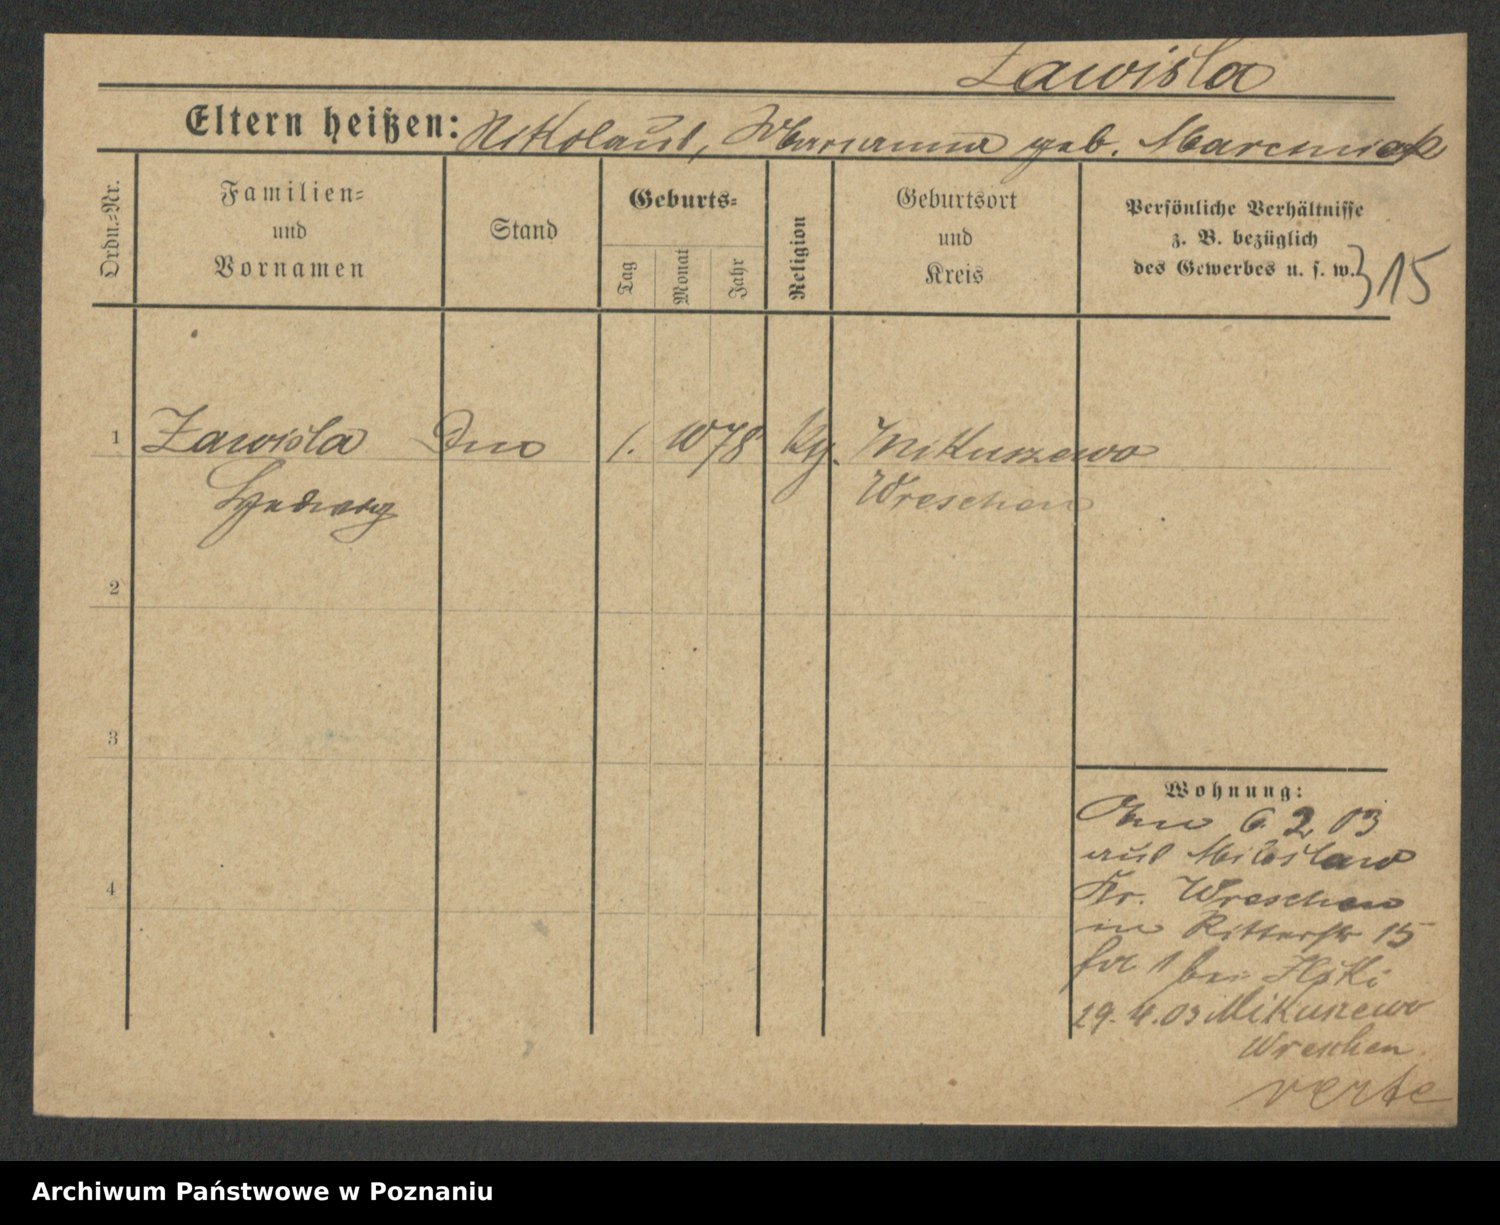 Zawisla
Eltern heißen: Nikolaus, Marianna geb. Marciniak
Ordn.-Nr.
Familien-
und
Vornamen
Stand
Geburts-
Tag
Monat
Jahr
Religion
Geburtsort
und
Kreis
Persönliche Verhältnisse
z. B. bezüglich
des Gewerbes u. s. w.
315
1 Zawisla 1. 10 78 Mikuszewo
Hedwig Wreschen
2
3
4
Wohnung:
6 2 03
aus Miloslaw
Kr. Wreschen
in Ritterstr 15
bei
29. 4. 03 Mikuszewo
Wreschen
verte
Archiwum Państwowe w Poznaniu